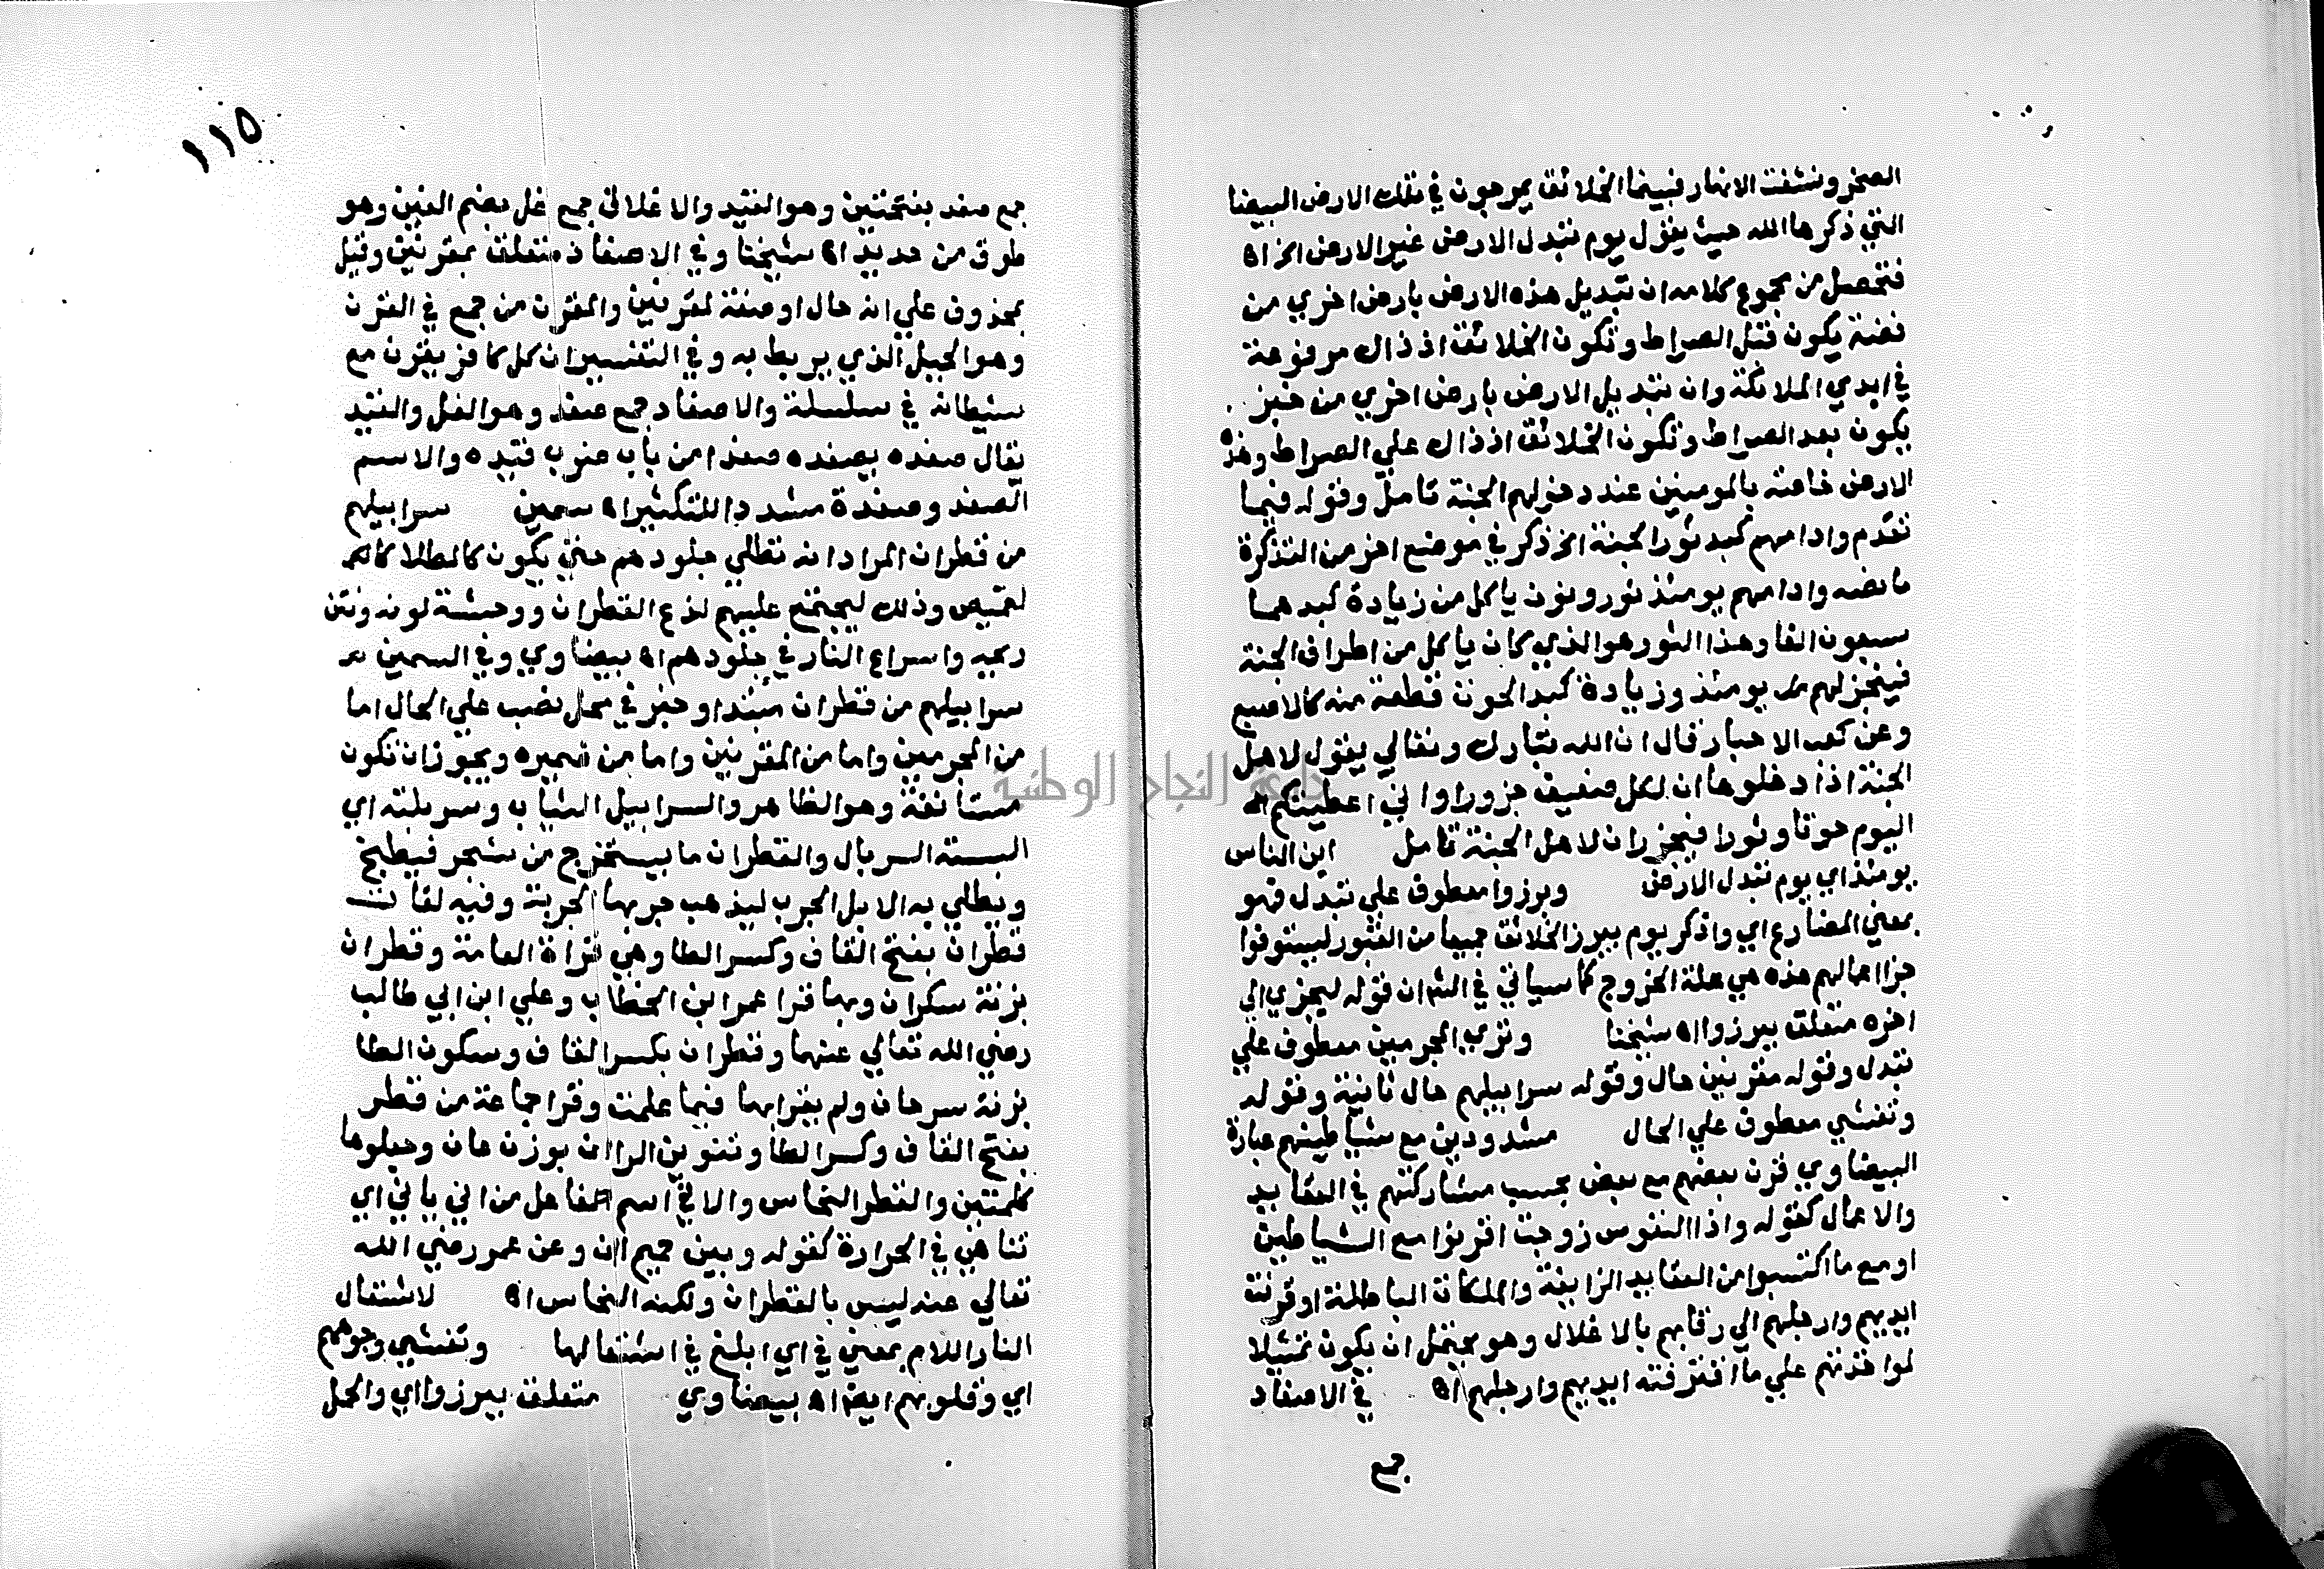 الصخر ونشفت الانهار فبينما الخلائق يموجون في تلك الارض البيضا
التي ذكرها الله حيث يقول يوم تبدل الارض غير الارض الخ اه
فتحصل من مجموع كلامه ان تبديل هذه الارض بارض اخري من
فضة يكون قبل الصراط وتكون الخلائق اذ ذاك مرفوعة
في ايدي الملائكة وان تبديل الارض بارض اخري من خبز
يكون بعد الصراط وتكون الخلائق اذ ذاك علي الصراط وهذه
الارض خاصة بالمومنين عند دخولهم الجنة تامل وقوله فيما
تقدم وادامهم كبد ثور الجنة الخ ذكر في موضع اخر من التذكرة
ما نصه وادامهم يومئذ ثور ونون ياكل من زيادة كبدهما
سبعون الفا وهذا الثور هو الذي كان ياكل من اطراف الجنة
فينحر لهم يومئذ وزيادة كبد الحوت قطعة منه كالاصبع
وعن كعب الاحبار قال ان الله تبارك وتعالي يقول لاهل
الجنة اذا دخلوها ان لكل ضيف جزورا واني اعطيتكم
اليوم حوتا وثورا فيجزران لاهل الجنة تامل اين الناس
يومئذ اي يوم تبدل الارض وبرزوا معطوف علي تبدل فهو
بمعني المضارع اي واذكر يوم يبرز الخلائق جميعا من القبور ليستوفوا
جزا اعمالهم هذه هي علة الخروج كما سياتي في الشم ان قوله ليجزي الي
اخره متعلق ببرزوا اه شيخنا وتري المجرمين معطوف علي
تبدل وقوله مقرنين حال وقوله سرابيلهم حال ثانية وقوله
وتغشي معطوف علي الحال مشدودين مع شياطينهم عبارة
البيضاوي قرن بعضهم مع بعض بحسب مشاركتهم في العقايد
والاعمال كقوله واذا النفوس زوجت اقرنوا مع الشياطين
او مع ما اكتسبوا من العقايد الزايغة والملكات الباطلة او قرنت
ايديهم وارجلهم الي رقابهم بالاغلال وهو يحتمل ان يكون تمثيلا
لمواخذتهم علي ما اقترفته ايديهم وارجلهم اه في الاصفاد
جمع
١١٥
جمع صفد بفتحتين وهو القيد والاغلال جمع غل بضم الغين وهو
طوق من حديد اه شيخنا وفي الاصفاد متعلق بمقرنين وقيل
بمحذوف علي انه حال او صفة لمقرنين والمقرن من جمع في القرن
وهو الحبل الذي يربط به وفي التفسير ان كل كافر يقرن مع
شيطانه في سلسلة والاصفاد جمع صفد وهو الغل والقيد
يقال صفده يصفده صفدا من باب ضرب قيده والاسم
الصفد وصفده مشددا للتكثير اه سمين سرابيلهم
من قطران المراد انه تطلي جلودهم حتي يكون كالطلا كالهم
لقميص وذلك ليجتمع عليهم لذع القطران ووحشة لونه ونتن
ريحه واسراع النار في جلودهم اه بيضاوي وفي السمين
سرابيلهم من قطران مبتدا وخبر في محل نصب علي الحال اما
من المجرمين واما من المقرنين واما من ضميره ويجوز ان تكون
مستانفة وهو الظاهر والسرابيل الثياب وسربلته اي
البسته السربال والقطران ما يستخرج من شجر فيطبخ
ويطلي به الابل الجرب ليذهب جربها الجربة وفيه لغات
قطران بفتح القاف وكسر الطا وهي قراة العامة وقطران
بزنة سكران وبها قرا عمر ابن الخطاب وعلي ابن ابي طالب
رضي الله تعالي عنهما وقطران بكسر القاف وسكون الطا
بزنة سرحان ولم يقرا بها فيما علمت وقرا جماعة من قطر
بفتح القاف وكسر الطا وتنوين الرا ان بوزن هان وجعلوها
كلمتين والقطر النحاس والاني اسم الفاعل من اني ياني اي
تناهي في الحرارة كقوله وبين حميم ان وعن عمر رضي الله
تعالي عنه ليس بالقطران ولكنه النحاس اه لاشتعال
النار اللام بمعني في اي ابلغ في اشتعالها وتغشي وجوههم
اي وقلوبهم ايضا اه بيضاوي متعلق ببرزوا اي والجمل
جامعة النجاح الوطنية